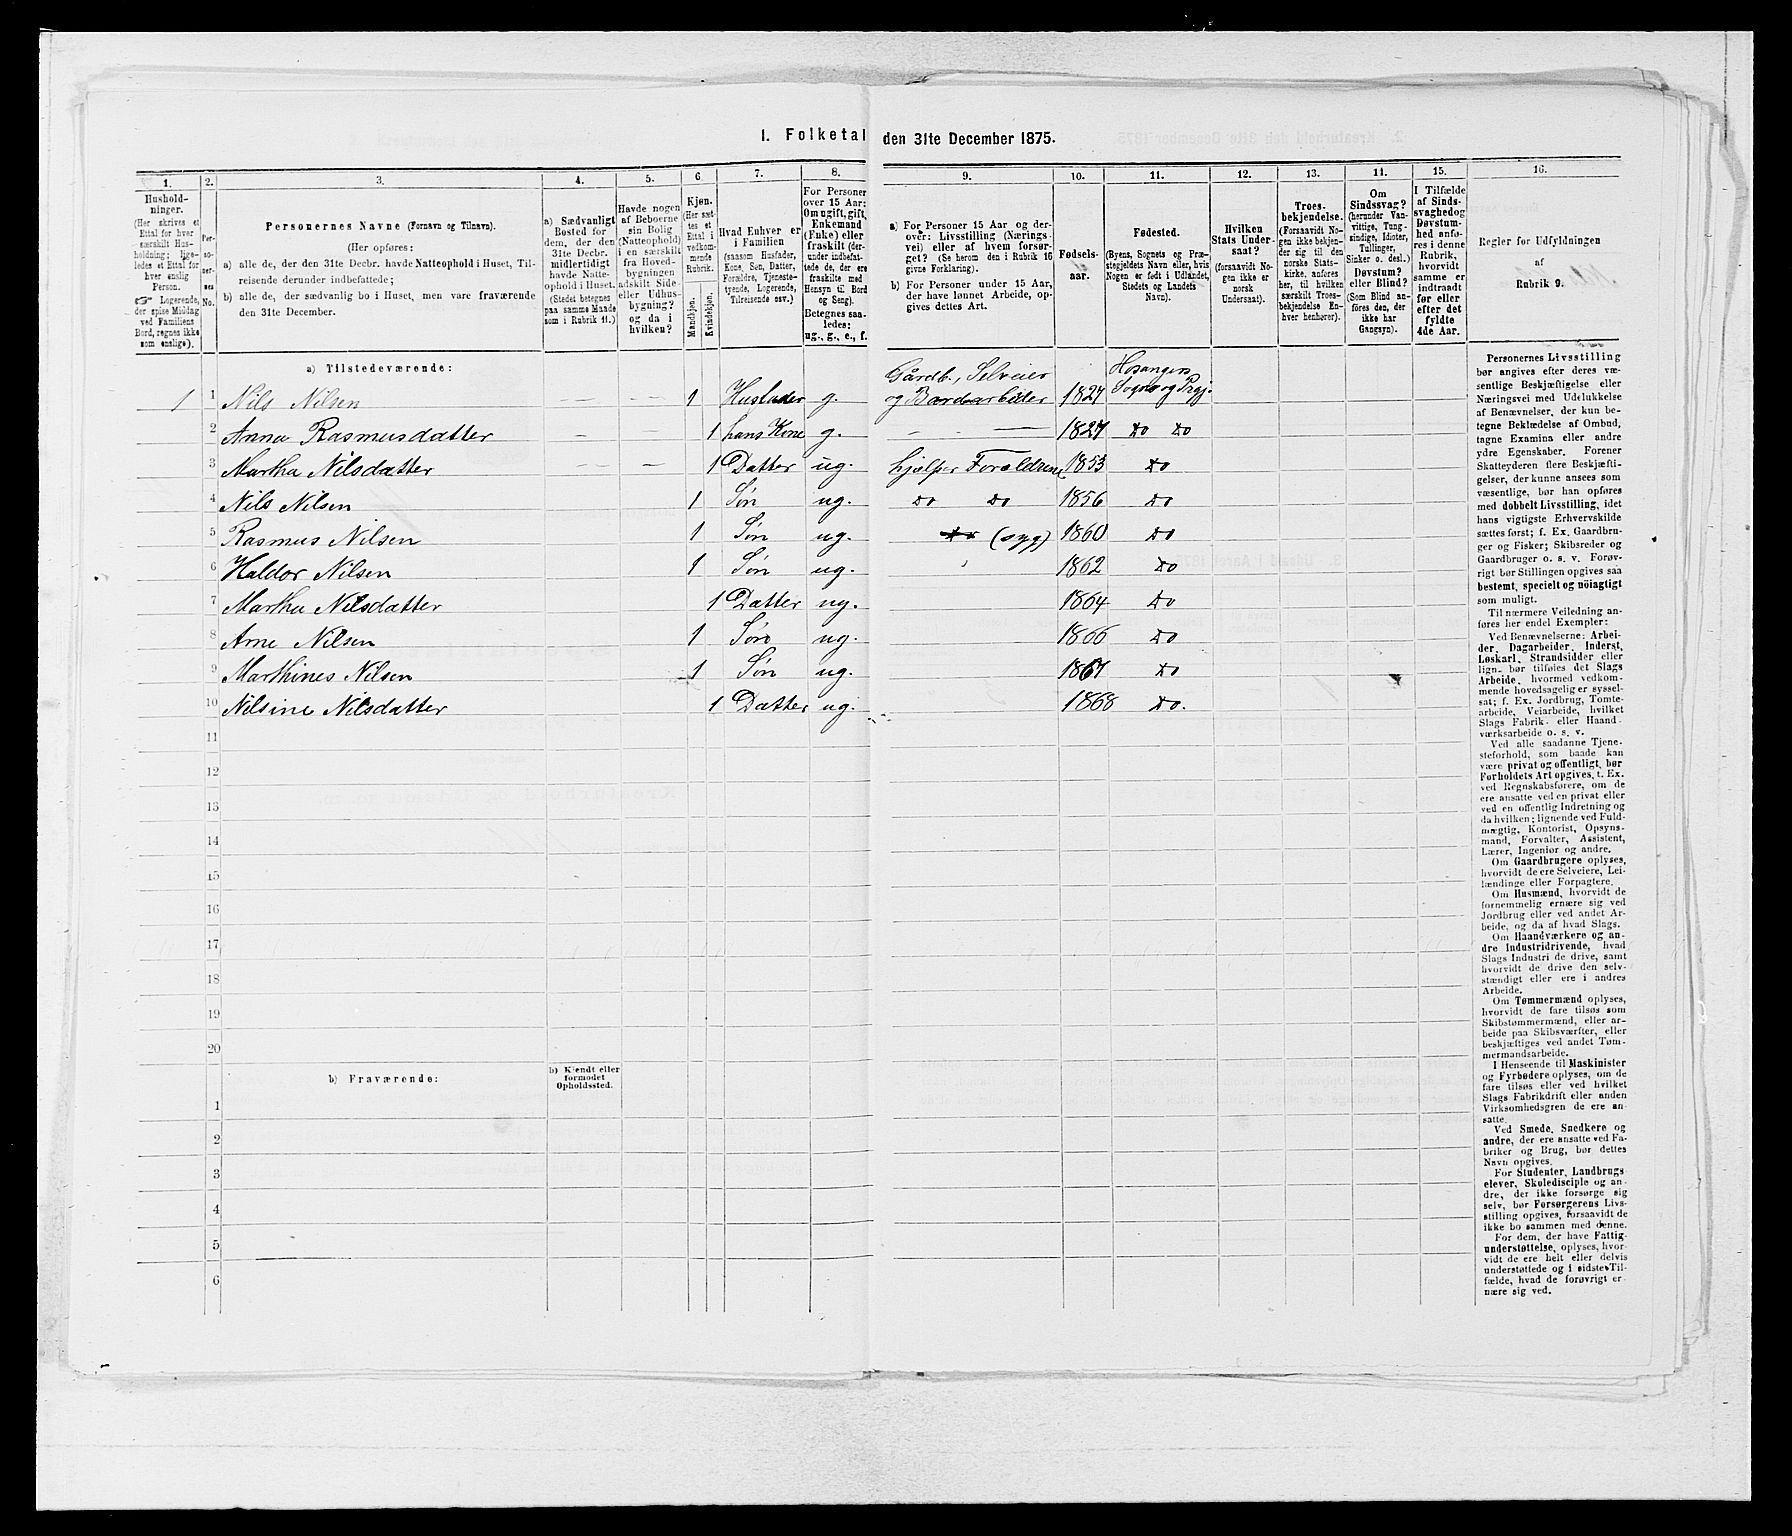 I. Folketal den 31te December 1875.
1. 2. 3. 4. 5. 6. 7. 8. 9. 10. 11. 12. 13. 14. 15. 16.
Husholdninger.
(Her skrives et
Ettal for hver
særskilt Hus-
holdning; lige-
ledes et Ettal for
hver enslig
Person.
☞ Logerende,
der spise Middag
ved Familiens
Bord, regnes ikke
som enslige).
Personernes No.
Personernes Navne (Fornavn og Tilnavn).
(Her opføres:
a) alle de, der den 31te Decbr. havde Natteophold i Huset, Til-
reisende derunder indbefattede;
b) alle de, der sædvanlig bo i Huset, men vare fraværende
den 31te December.
a) Sædvanligt
Bosted for
dem, der den
31te Decbr.
midlertidigt
havde Natte-
ophold i Huset.
(Stedet betegnes
paa samme Maade
som i Rubrik 11.)
Havde nogen
af Beboerne
sin Bolig
(Natteophold)
i en særskilt
fra Hoved-
bygningen
adskilt Side-
eller Udhus-
bygning?
og da i
hvilken?
Kjøn.
(Her sæt-
tes et
Ettal i
vedkom-
mende
Rubrik.
Mandkjøn.
Kvindekjøn.
Hvad Enhver er
i Familien
(saasom Husfader,
Kone, Søn, Datter,
Forældre, Tjeneste-
tyende, Logerende,
Tilreisende osv.)
For Personer
over 15 Aar:
Om ugift, gift,
Enkemand
(Enke) eller
fraskilt (der-
under indbefat-
tede de, der ere
fraskilte med
Hensyn til Bord
og Seng).
Betegnes saa-
ledes:
ug., g., e., f.
a) For Personer 15 Aar og der-
over: Livsstilling (Nærings
vei) eller af hvem forsør-
get? (Se herom den i Rubrik 16
givne Forklaring).
b) For Personer under 15 Aar,
der have lønnet Arbeide, op-
gives dettes Art.
Fødsels-
aar.
Fødested.
(Byens, Sognets og Præ-
stegjeldets Navn eller, hvis
Nogen er født i Udlandet,
Stedets og Landets
Navn).
Hvilken
Stats Under-
saat?
(forsaavidt No-
gen ikke er
norsk
Undersaat).
Troes-
bekjendelse.
(Forsaavidt No-
gen ikke bekjen-
der sig til den
norske Stats-
kirke, anføres
her, til hvilken
særskilt Troes-
bekjendelse En-
hver henhører).
Om
Sindssvag?
(herunder Van-
vittige, Tung-
sindige, Idioter,
Tullinger,
Sinker o. desl.)
Døvstum?
eller Blind?
(Som Blind an-
føres den, der
ikke har
Gangsyn).
I Tilfælde
af Sinds-
svaghed og
Døvstum-
hed anfø-
res i denne
Rubrik,
hvorvidt
samme er
indtraadt
før eller
efter det
fyldte
4de Aar.
Regler for Udfyldningen
af
Rubrik 9.
a) Tilstedeværende:
1 1 Nils Nilsen — — 1 Husfader g. Gårdb., Selveier og Bordarbeider 1827 Hosangers Sogn og Prgj.
2 Anna Rasmusdatter — — 1 hans Kone g. — — 1827 Do Do
3 Martha Nilsdatter — — 1 Datter ug. hjælper Forældrene 1853 Do
4 Nils Nilsen 1 Søn ug. Do Do 1856 Do
5 Rasmus Nilsen 1 Søn ug. Do (syg) 1860 Do
6 Haldor Nilsen 1 Søn ug. 1862 Do
7 Martha Nilsdatter 1 Datter ug. 1864 Do
8 Arne Nilsen 1 Søn ug. 1866 Do
9 Marthines Nilsen 1 Søn ug. 1867 Do
10 Nilsine Nilsdatter 1 Datter ug. 1868 Do.
11
12
13
14
15
16
17
18
19
20
b) Fraværende:
b) Kjendt eller
formodet
Opholdssted.
1
2
3
4
5
6
Personernes Livsstilling
bør angives efter deres væ-
sentlige Beskjæftigelse eller
Næringsvei med Udelukkelse
af Benævnelser, der kun be-
tegne Beklædelse af Ombud,
tagne Examina eller andre
ydre Egenskaber. Forener
Skatteyderen flere Beskjæfti-
gelser, der kunne ansees som
væsentlige, bør han opføres
med dobbelt Livsstilling, idet
hans vigtigste Erhvervskilde
sættes først; f. Ex. Gaardbru-
ger og Fisker; Skibsreder og
Gaardbruger o. s. v. Forøv-
rigt bør Stillingen opgives saa
bestemt, specielt og nöiagtigt
som muligt.
Til nærmere Veiledning an-
føres her endel Exempler:
Ved Benævnelserne: Arbei-
der, Dagarbeider, Inderst,
Løskarl, Strandsidder eller
lign. bør tilføies det Slags
Arbeide, hvormed vedkom-
mende hovedsagelig er syssel-
sat; f. Ex. Jordbrug, Tomte-
arbeide, Veiarbeide, hvilket
Slags Fabrik- eller Haand-
værksarbeide o. s. v.
Ved alle saadanne Tjene-
steforhold, som baade kan
være privat og offentligt, bør
Forholdets Art opgives, t. Ex.
ved Regnskabsførere, om de
ere ansatte ved en privat eller
ved en offentlig Indretning og
da hvilken; lignende ved Fuld-
mægtig, Kontorist, Opsyns-
mand, Forvalter, Assistent,
Lærer, Ingeniør og andre.
Om Gaardbrugere oplyses,
hvorvidt de ere Selveiere, Lei-
lændinge eller Forpagtere.
Om Husmænd, hvorvidt de
fornemmelig ernære sig ved
Jordbrug eller ved andet Ar-
beide, og da af hvad Slags.
Om Haandværkere og an-
dre Industridrivende, hvad
Slags Industri de drive, samt
hvorvidt de drive den selv-
stændigt eller ere i andres
Arbeide.
Om Tømmermænd oplyses,
hvorvidt de fare tilsøs som
Skibstømmermænd, eller ar-
beide paa Skibsværfter, eller
beskjæftiges ved andet Tøm-
mermandsarbeide.
I Henseende til Maskinister
og Fyrbødere oplyses, om de
fare tilsøs eller ved hvilket
Slags Fabrikdrift eller anden
Virksomhedsgren de ere an-
satte.
Ved Smede, Snedkere og
andre, der ere ansatte ved Fa-
briker og Brug, bør dettes
Navn opgives.
For Studenter, Landbrugs
elever, Skoledisciple og an-
dre, der ikke forsørge sig
selv, bør Forsørgerens Livs-
stilling opgives, forsaavidt de
ikke bo sammen med denne.
For dem, der have Fattig-
understøttelse, oplyses, hvor-
vidt de ere helt eller delvis
understøttede og i sidste Til-
fælde, hvad de forøvrigt er-
nære sig ved.